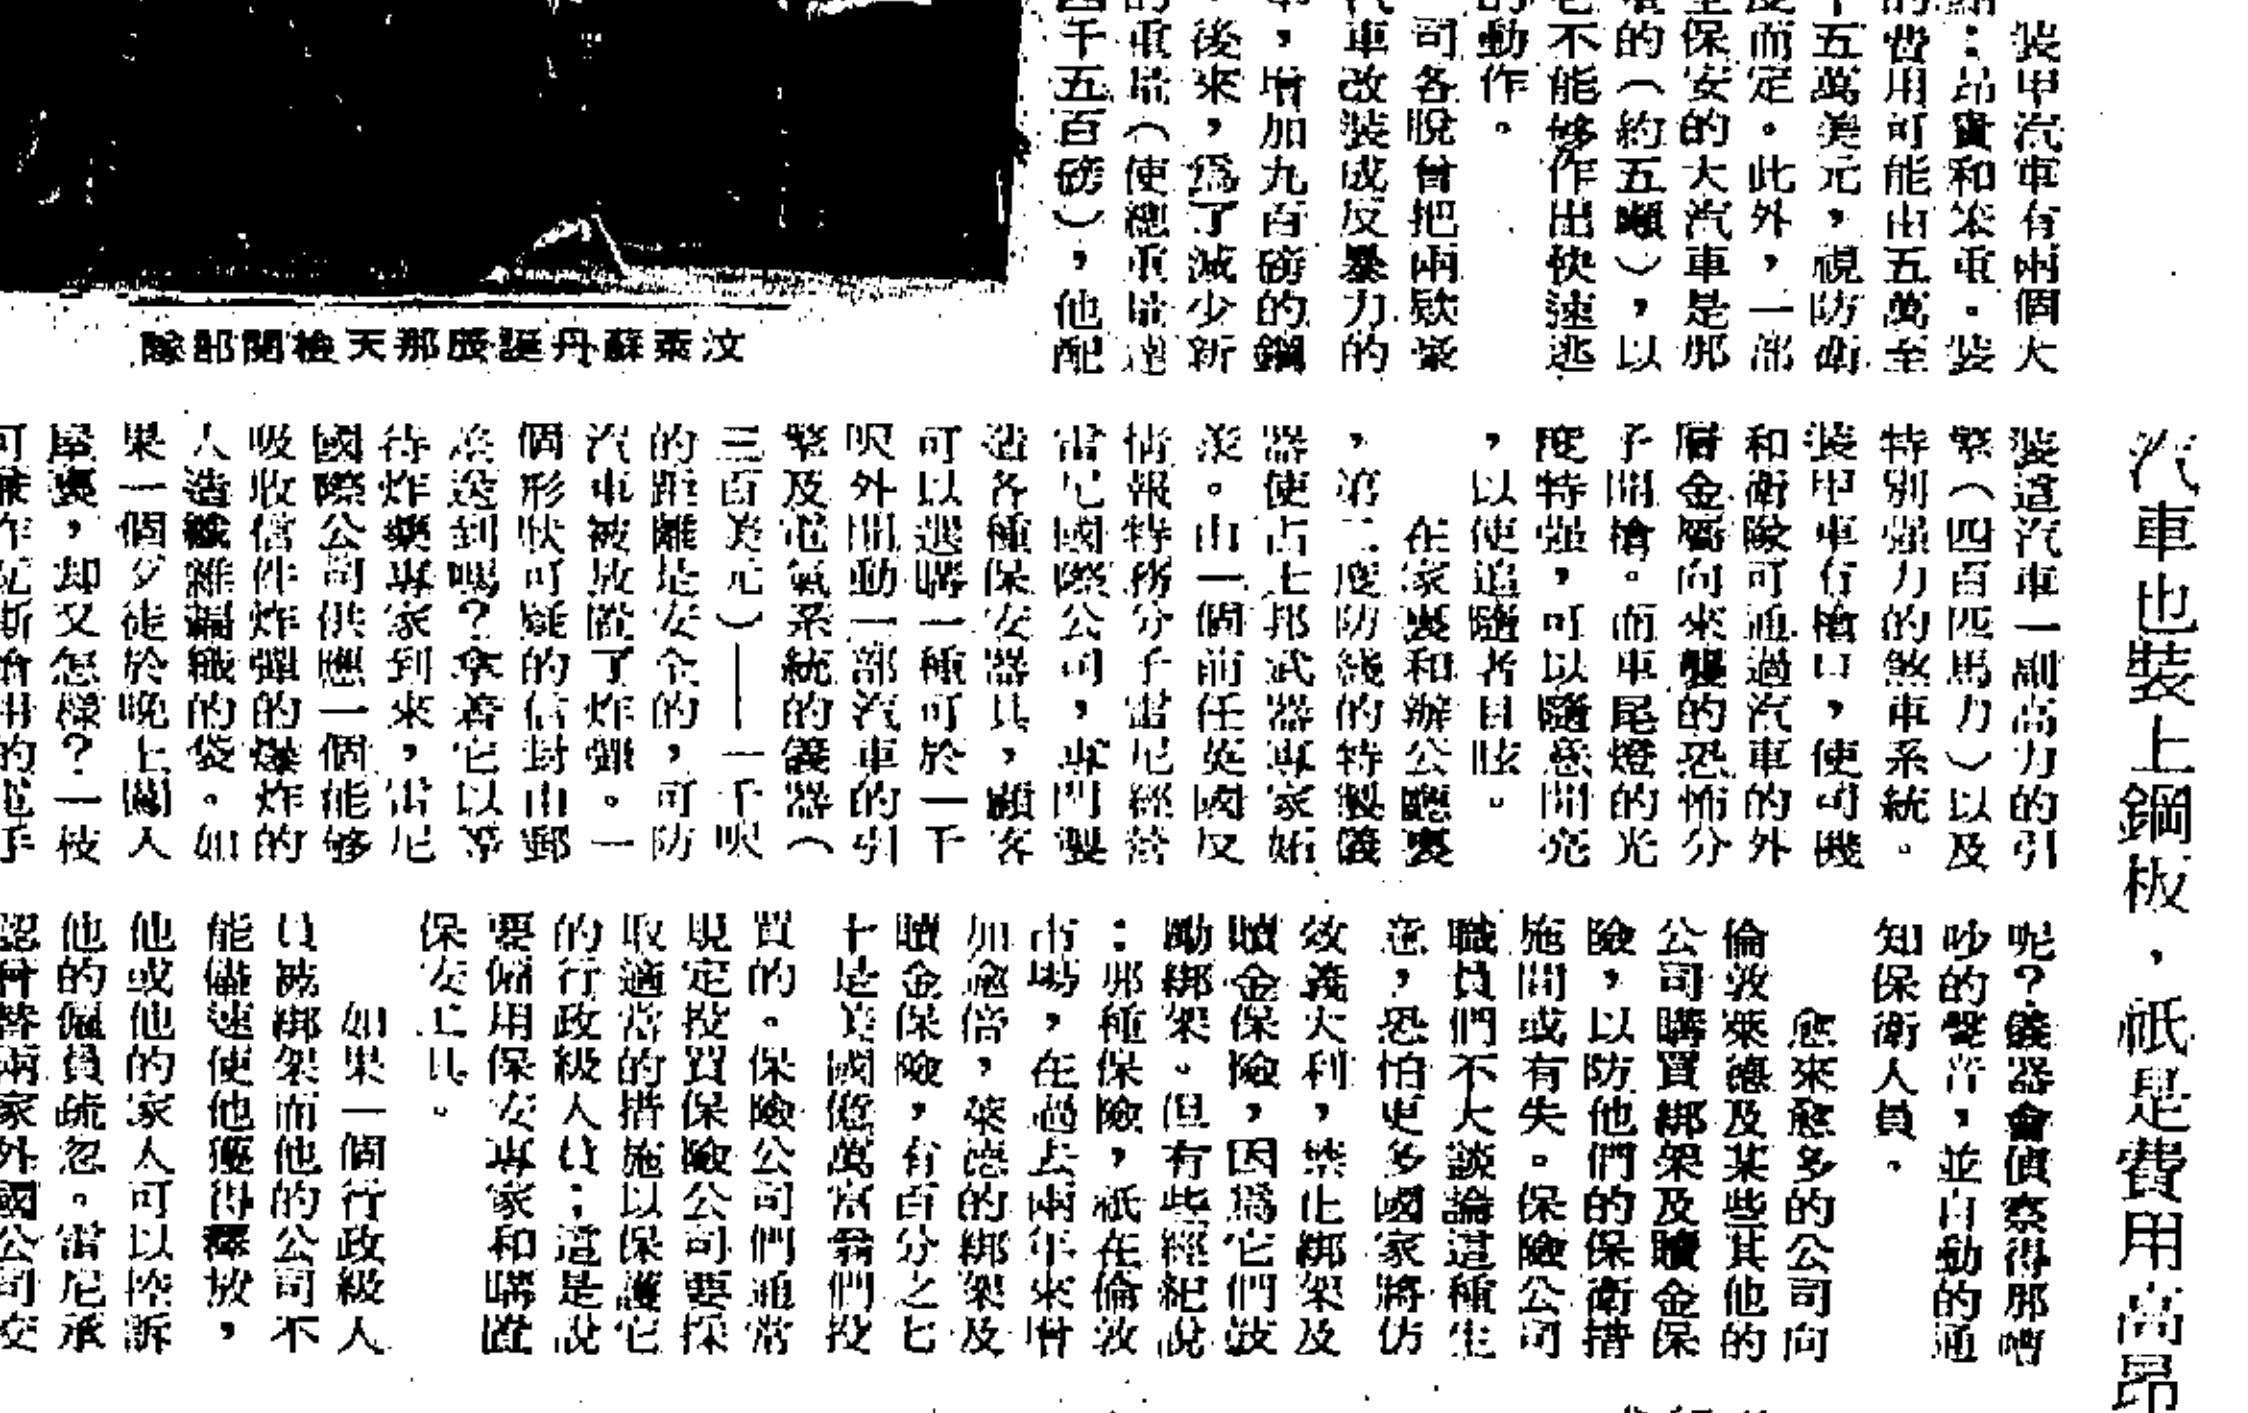 汽車也裝上鋼板，祇是費用高昂
裝甲汽車有兩個大
點：昂貴和笨重。裝
的費用可能由五萬至
十五萬美元，視防衛
度而定。此外，一部
全保安的大汽車是那
的（約五噸），以
它不能够作出快速逃
的動作。
司各脫曾把兩欵豪
汽車改裝成反暴力的
車，增加九百磅的鋼
。後來，爲了減少新
的重量（使總重量達
四千五百磅），他配
汶萊蘇丹誕辰那天檢閱部隊
裝這汽車一副高力的引
擎（四百匹馬力）以及
特別强力的煞車系統。
裝甲車有槍口，使司機
和衛隊可通過汽車的外
層金屬向來襲的恐怖分
子開槍。而車尾燈的光
度特强，可以隨意開亮
，以使追隨者目眩。
在家裏和辦公廳裏
，第二度防綫的特製儀
器使占士邦武器專家妬
羨。由一個前任英國反
情報特務分子雷尼經營
雷尼國際公司，專門製
造各種保安器具，顧客
可以選購一種可於一千
呎外開動一部汽車的引
擎及電氣系統的儀器（
三百美元）——一千呎
的距離是安全的，可防
汽車被放置了炸彈。一
個形狀可疑的信封由郵
差送到嗎？拿着它以等
待炸藥專家到來，雷尼
國際公司供應一個能够
吸收信件炸彈的爆炸的
人造纖維編織的袋。如
果一個歹徒於晚上闖入
屋裏，却又怎樣？一枝
可兼作尼斯槍用的電手
呢？儀器會偵察得那嘈
吵的聲音，並自動的通
知保衛人員。
愈來愈多的公司向
倫敦萊德及某些其他的
公司購買綁架及贖金保
險，以防他們的保衛措
施間或有失。保險公司
職員們不大談論這種生
意，恐怕更多國家將仿
效義大利，禁止綁架及
贖金保險，因爲它們鼓
勵綁架。但有些經紀說
：那種保險，祇在倫敦
市場，在過去兩年來增
加愈倍，萊德的綁架及
贖金保險，有百分之七
十是美國億萬富翁們投
買的。保險公司們通常
規定投買保險公司要採
取適當的措施以保護它
的行政級人員；這是說
要僱用保安專家和購置
保安工具。
如果一個行政級人
員被綁架而他的公司不
能儘速使他獲得釋放，
他或他的家人可以控訴
他的僱員疏忽。雷尼承
認曾替兩家外國公司交